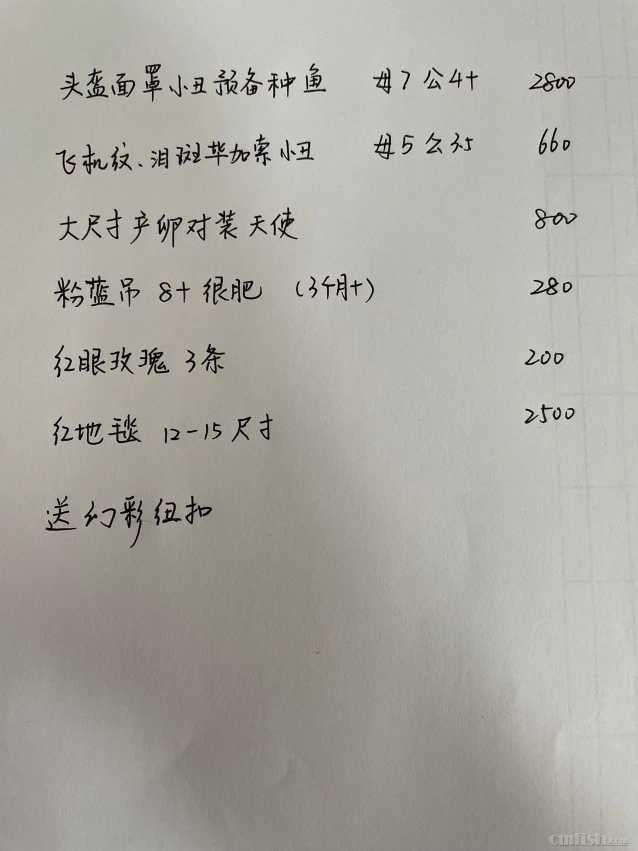 头盔面罩小丑预备种鱼 母7 公4+ 2800
飞机纹、泪斑毕加索小丑 母5 公3.5 660
大尺寸产卵对装天使 800
粉蓝吊 8+ 很肥 (3个月+) 280
红眼玫瑰 3条 200
红地毯 12-15尺寸 2500
送幻彩纽扣
cmfish.com